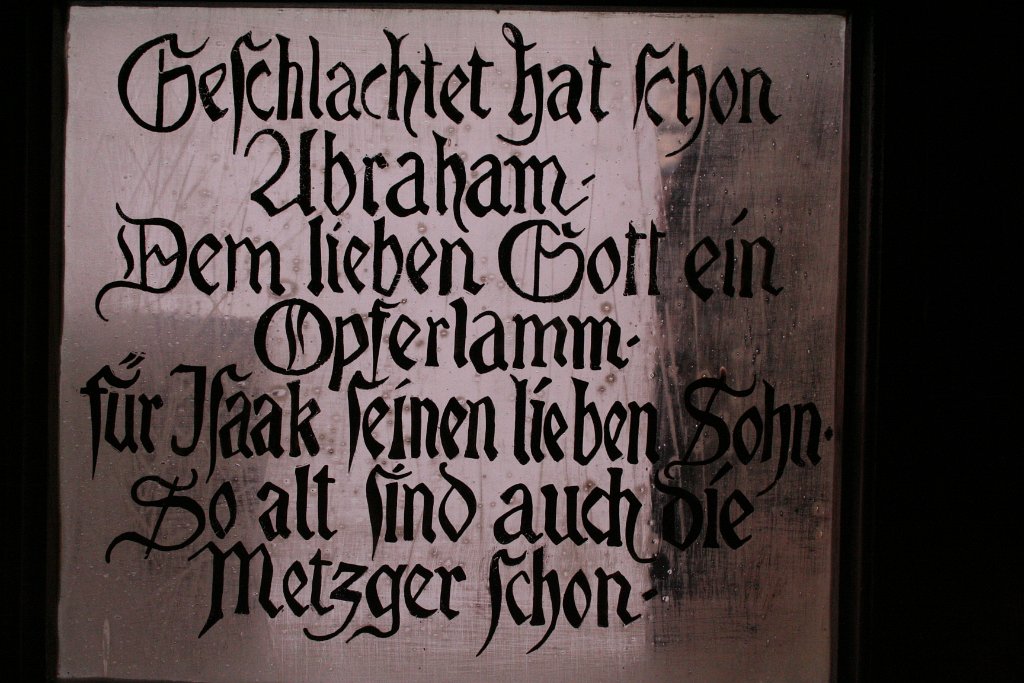 Geſchlachtet hat ſchon
Abraham.
Dem lieben Gott ein
Opferlamm.
für Iſaak ſeinen lieben Sohn.
So alt ſind auch die
Metzger ſchon.